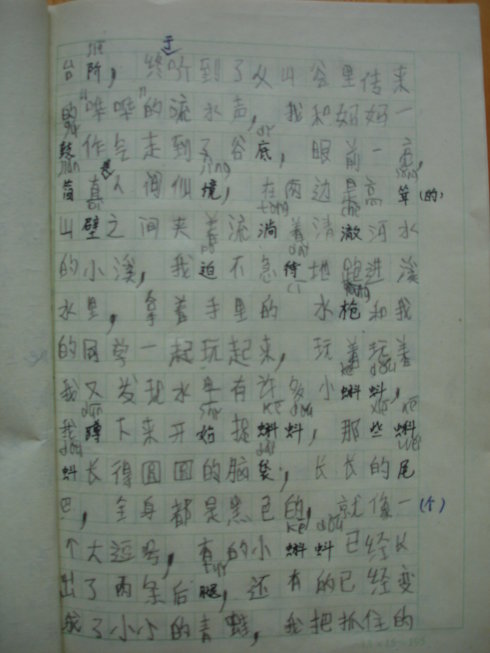 台阶，终于听到了从山谷里传来
的“哗哗”的流水声，我和好好一
鼓作气走到了谷底，眼前一亮，
简真人间仙境，在两边是高耸(的)
山壁之间夹着流淌着清澈河水
的小溪，我迫不急待地跑进溪
水里，拿着手里的 水枪和我
的同学一起玩起来，玩着玩着
我又发现水里有许多小蝌蚪，
我蹲下来开始捉蝌蚪，那些蝌
蚪长得圆圆的脑袋，长长的尾
巴，全身都是黑色的，就像一(个)
个大逗号，有的小蝌蚪已经长
出了两条后腿，还有的已经变
成了小小的青蛙，我把抓住的